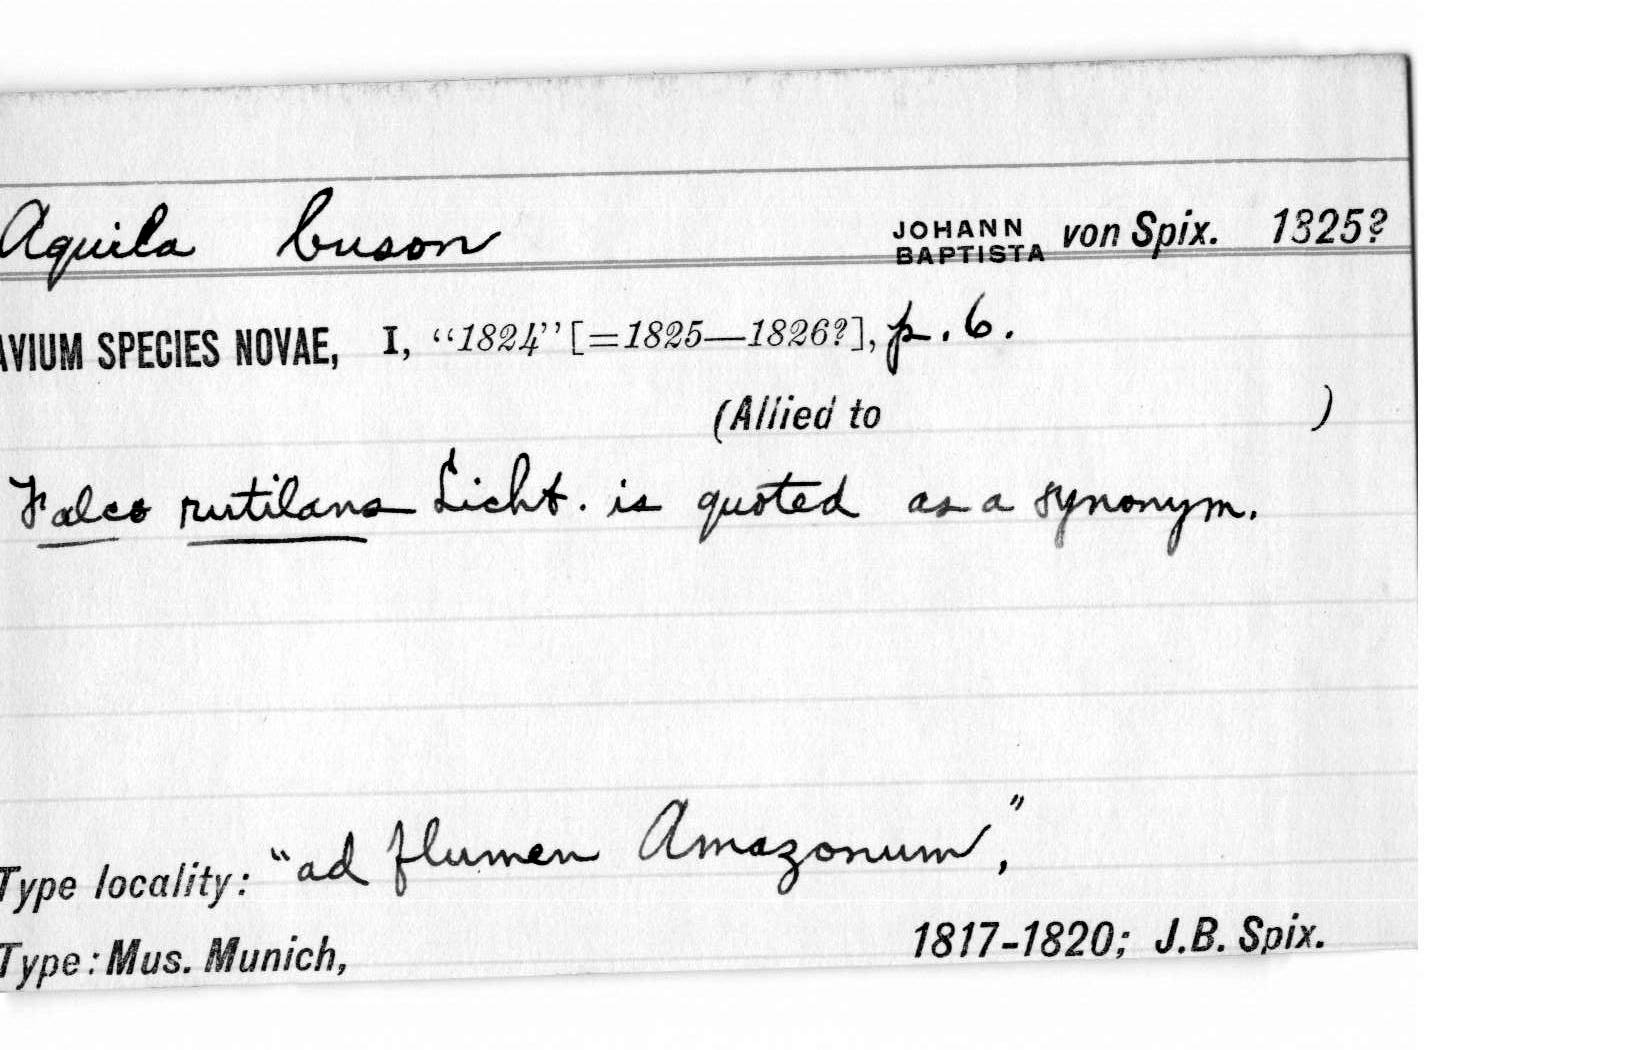 Aquila buson JOHANN BAPTISTA von Spix. 1825?
AVIUM SPECIES NOVAE, I, “1824” [=1825—1826?], p. 6.
(Allied to )
Falco rutilans Licht. is quoted as a synonym.
Type locality: "ad flumen Amazonum",
Type: Mus. Munich, 1817-1820; J.B. Spix.